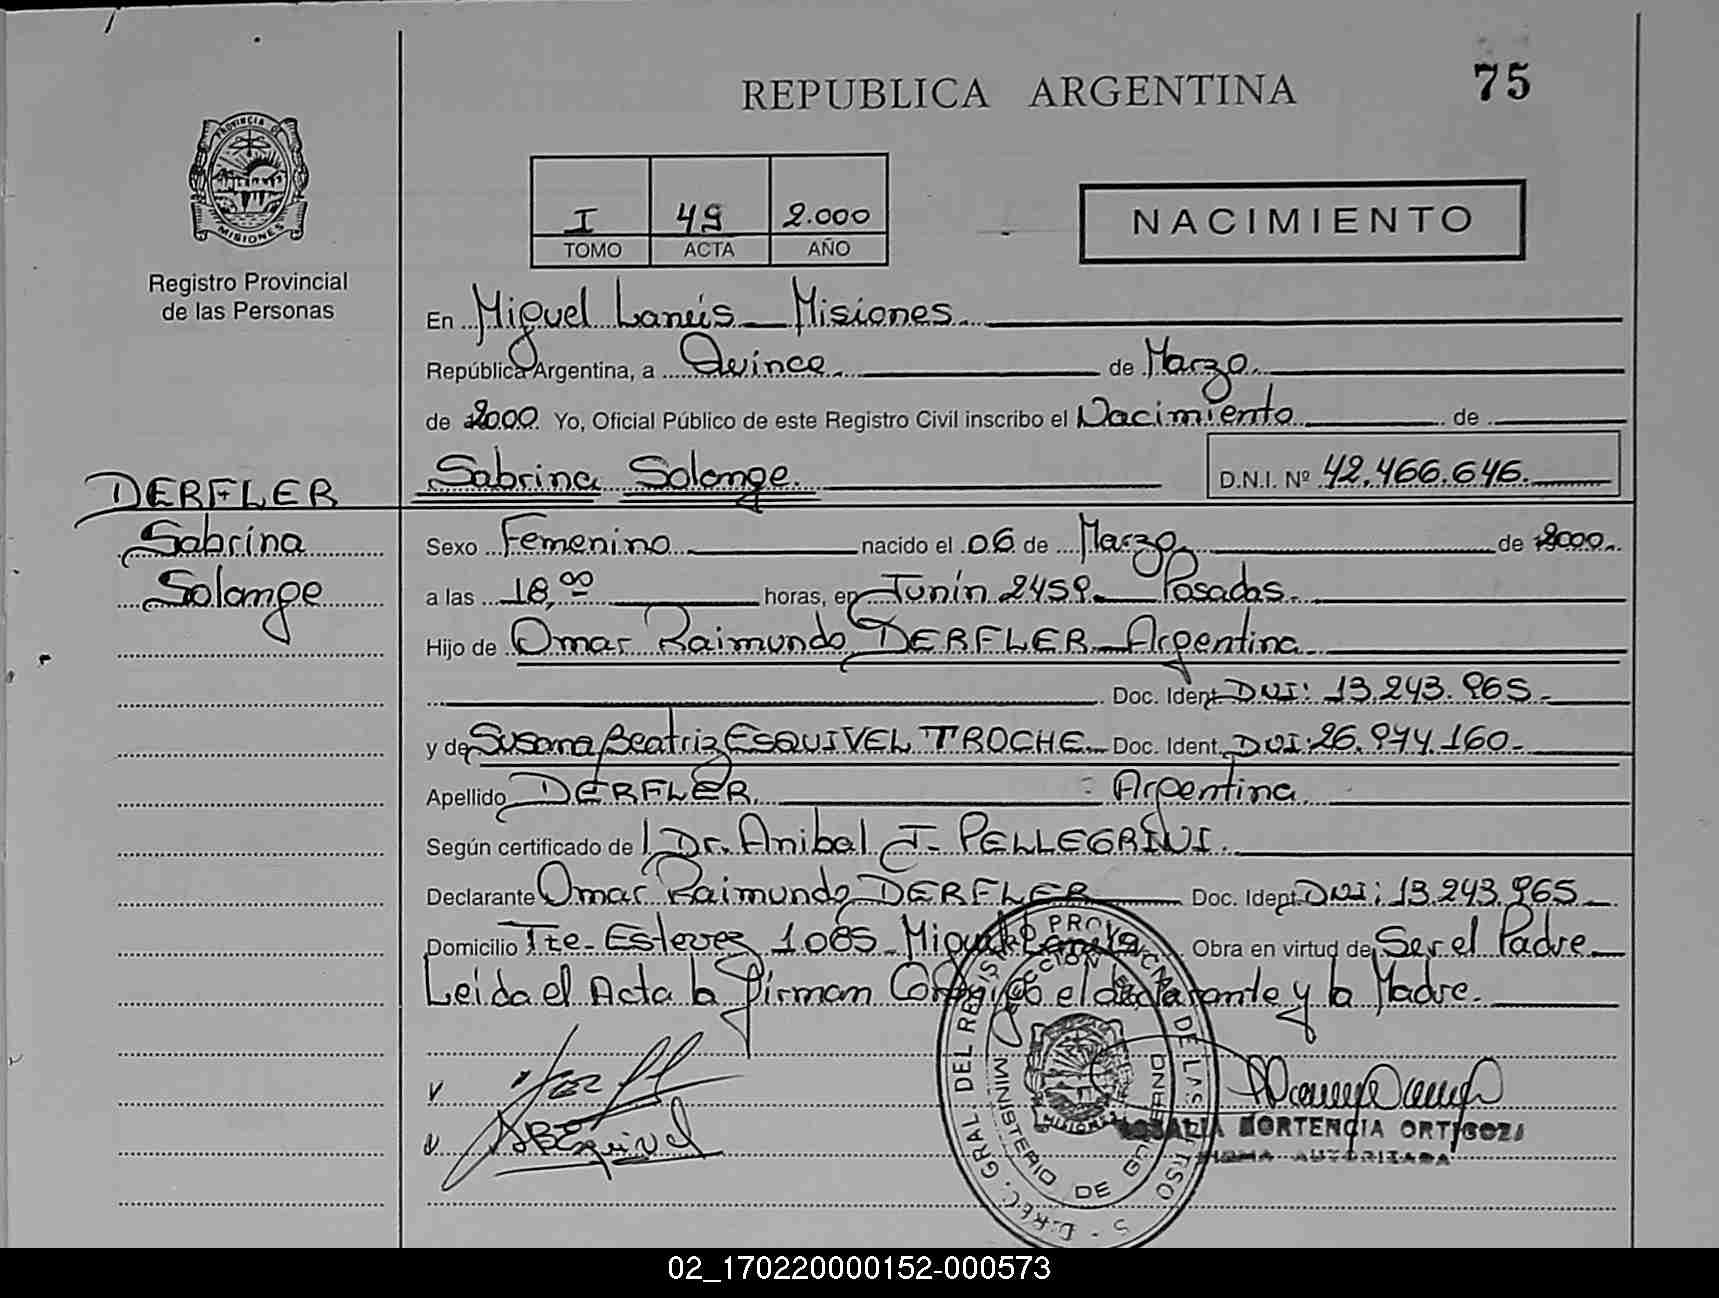 REPUBLICA ARGENTINA
75
PROVINCIA DE
MISIONES
Registro Provincial
de las Personas
I 49 2.000
TOMO ACTA AÑO
NACIMIENTO
En Miguel Lanús - Misiones.
República Argentina, a Quince de Marzo
de 2000 Yo, Oficial Público de este Registro Civil inscribo el Nacimiento de
Sabrina Solange. D.N.I. Nº 42.466.646.
DERFLER
Sabrina
Solange
Sexo Femenino nacido el 06 de Marzo de 2000
a las 18,00 horas, en Junín 2459 - Posadas.
Hijo de Omar Raimundo DERFLER - Argentina
Doc. Ident. DNI: 13.243.965-
y de Susana Beatriz ESQUIVEL TROCHE - Doc. Ident. DNI: 26.974.160-
Apellido DERFLER Argentina
Según certificado de Dr. Anibal J. PELLEGRINI.
Declarante Omar Raimundo DERFLER Doc. Ident. DNI: 13.243.965
Domicilio Tte. Estevez 1.065 - Miguel Lanús Obra en virtud de Ser el Padre
Leida el Acta la firman Conmigo el declarante y la Madre.
MINISTERIO DE GOBIERNO
HORTENCIA ORTIGOZA
FIRMA AUTORIZADA
02_170220000152-000573